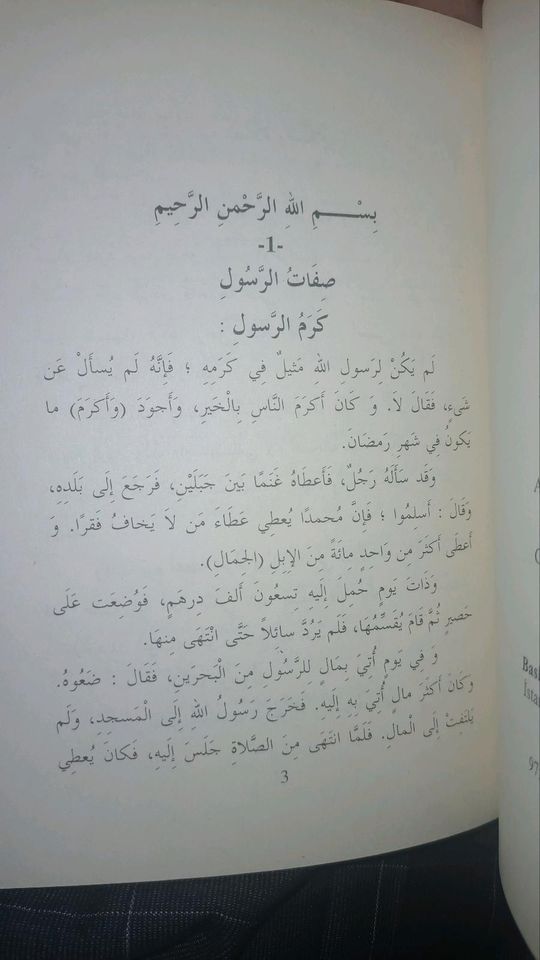 بِسْـــــمِ اللهِ الرَّحْمنِ الرَّحِيمِ
-1-
صِفَاتُ الرَّسُولِ
كَرَمُ الرَّسولِ :
لَم يَكُنْ لِرَسولِ اللهِ مَثيلٌ فِي كَرَمِهِ ؛ فَإِنَّهُ لَم يُسأَلْ عَن
شَىءٍ، فَقَالَ لاَ. وَ كَانَ أَكرَمَ النَّاسِ بِالْخَيرِ، وَأَجوَدَ (وَأَكرَمَ) ما
يَكونُ فِي شَهرِ رَمضَانَ.
وَقَد سَأَلَهُ رَجُلٌ، فَأَعطَاهُ غَنَمًا بَينَ جَبَلَيْنِ، فَرَجَعَ إلَى بَلَدِهِ،
وَقَالَ : أَسلِمُوا ؛ فَإِنَّ مُحمدًا يُعطِي عَطَاءَ مَن لاَ يَخافُ فَقرًا. وَ
أَعطَى أَكثَرَ مِن وَاحِدٍ مائَةً مِنَ الإبِلِ (الجِمَالِ).
وَذَاتَ يَومٍ حُمِلَ إلَيهِ تِسعُونَ أَلفَ دِرهَمٍ، فَوُضِعَت عَلَى
حَصيرٍ ثُمَّ قَامَ يُقَسِّمُهَا، فَلَم يَرُدَّ سائِلاً حَتَّى انْتَهَى مِنهَا.
وَ فِي يَومٍ أُتِيَ بِمَالٍ للرَّسُولِ مِنَ الْبَحرَينِ، فَقَالَ : ضَعُوهُ.
وَكَانَ أَكثَرَ مالٍ أُتِيَ بِهِ إلَيهِ. فَخَرَجَ رَسُولُ اللهِ إلَى الْمَسجِدِ، وَلَم
يَلتَفِتْ إلَى الْمالِ. فَلَمَّا انتَهَى مِنَ الصَّلاَةِ جَلَسَ إلَيهِ، فَكانَ يُعطِي
3
Bas
İsta
97